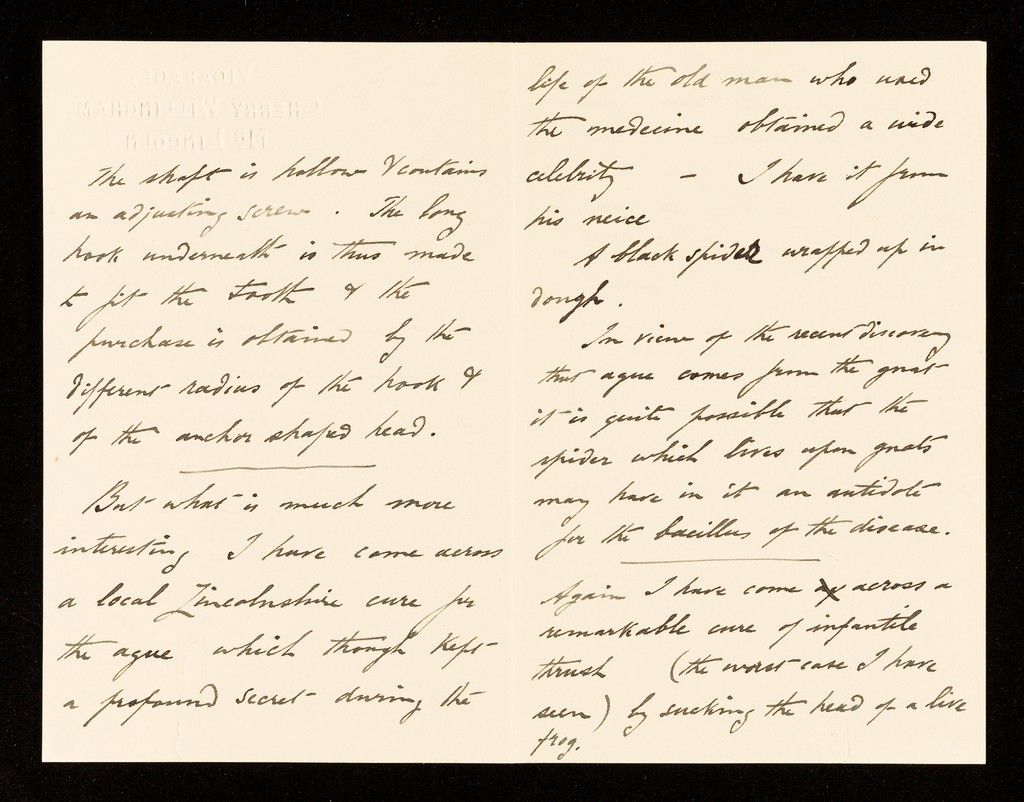 VICARAGE,
CHERRY WILLINGHAM,
Nr LINCOLN.
The shaft is hollow & contains
an adjusting screw. The long
hook underneath is thus made
to fit the tooth & the
purchase is obtained by the
different radius of the hook &
of the anchor shaped head.
But what is much more
interesting I have come across
a local Lincolnshire cure for
the ague which though kept
a profound secret during the
life of the old man who used
the medecine obtained a wide
celebrity – I have it from
his neice
A black spider wrapped up in
dough.
In view of the recent discovery
that ague comes from the gnat
it is quite possible that the
spider which lives upon gnats
may have in it an antidote
for the bacillus of the disease.
Again I have come across a
remarkable cure of infantile
thrush (the worst case I have
seen) by sucking the head of a live
frog.